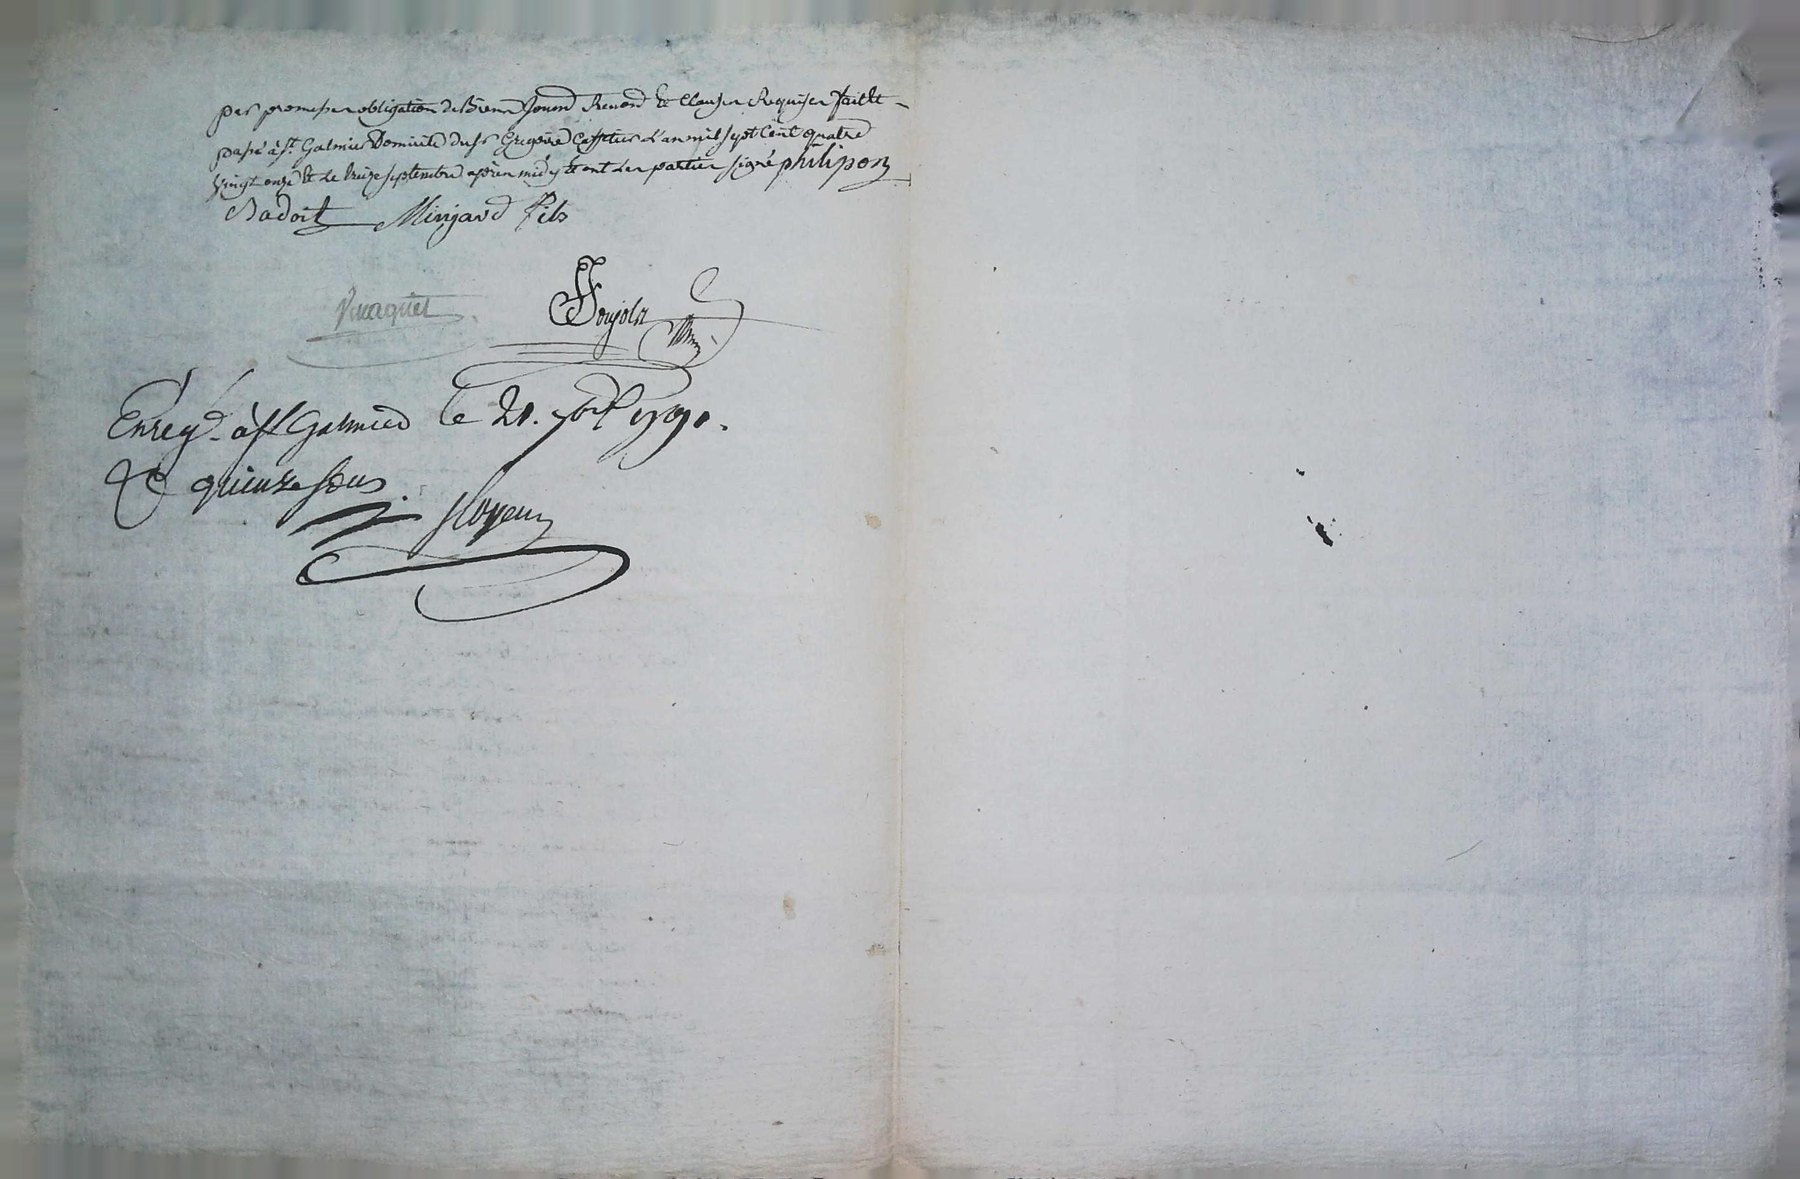 par promesse obligation de Biens Soumon Renon Et Clauses Requises fait Et
passé à St. Galmier Domicile du Sr Gregoire Caffetier L'an mil sept Cent quatre
vingt onze Et Le treize septembre après midy Et ont Les parties signé philipon
Badoit Minjard fils
Soujols
Enregé. à St Galmier le 21. 7bre 1791.
quinze sous.